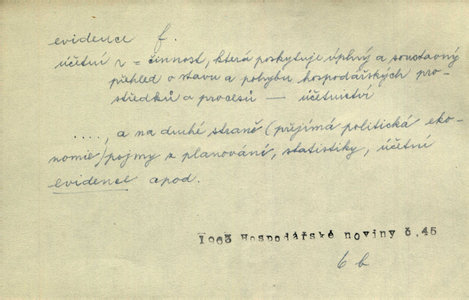 evidence f.
účetní e = činnost, která poskytuje úplný a soustavný
přehled o stavu a pohybu hospodářských pro-
středků a procesů — účetnictví
...., a na druhé straně (přejímá politická eko-
nomie) pojmy z plánování, statistiky, účetní
evidence apod.
1963 Hospodářské noviny č.45
6 b